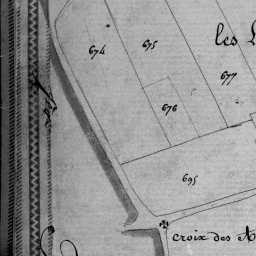 674
675
les
677
676
695
croix des